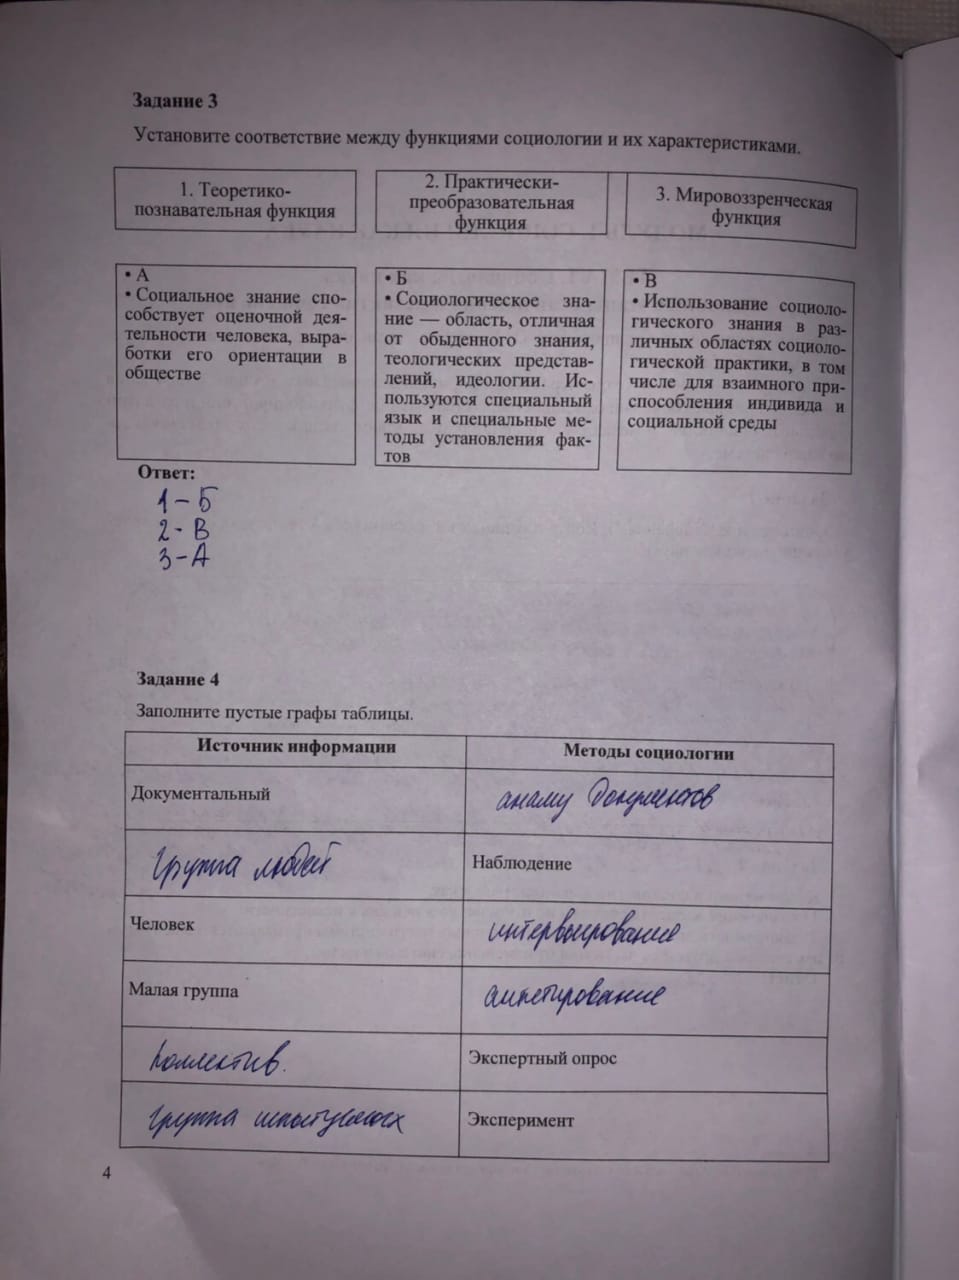 Задание 3
Установите соответствие между функциями социологии и их характеристиками.
1. Теоретико-
познавательная функция
2. Практически-
преобразовательная
функция
3. Мировоззренческая
функция
• А
• Социальное знание спо-
собствует оценочной дея-
тельности человека, выра-
ботки его ориентации в
обществе
• Б
• Социологическое зна-
ние — область, отличная
от обыденного знания,
теологических представ-
лений, идеологии. Ис-
пользуются специальный
язык и специальные ме-
тоды установления фак-
тов
• В
• Использование социоло-
гического знания в раз-
личных областях социоло-
гической практики, в том
числе для взаимного при-
способления индивида и
социальной среды
Ответ:
1 – Б
2 - В
3 – А
Задание 4
Заполните пустые графы таблицы.
Источник информации
Методы социологии
Документальный
анализ документов
Группа людей
Наблюдение
Человек
интервьюирование
Малая группа
анкетирование
Коллектив.
Экспертный опрос
Группа испытуемых
Эксперимент
4